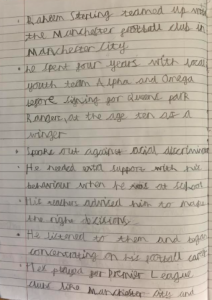 Raheem Sterling teamed up with
the Manchester football club in
Manchester City
He spent four years with local
youth team Alpha and Omega
before signing for Queens park
Rangers, at the age ten as a
winger
Spoke out against racial discrimination
He needed with support with his
behaviour when he was at school
His teachers advised him to make
the right decisions
He listened to them and began
concentrating on his football career
He played for Premier League
clubs like Manchester City and